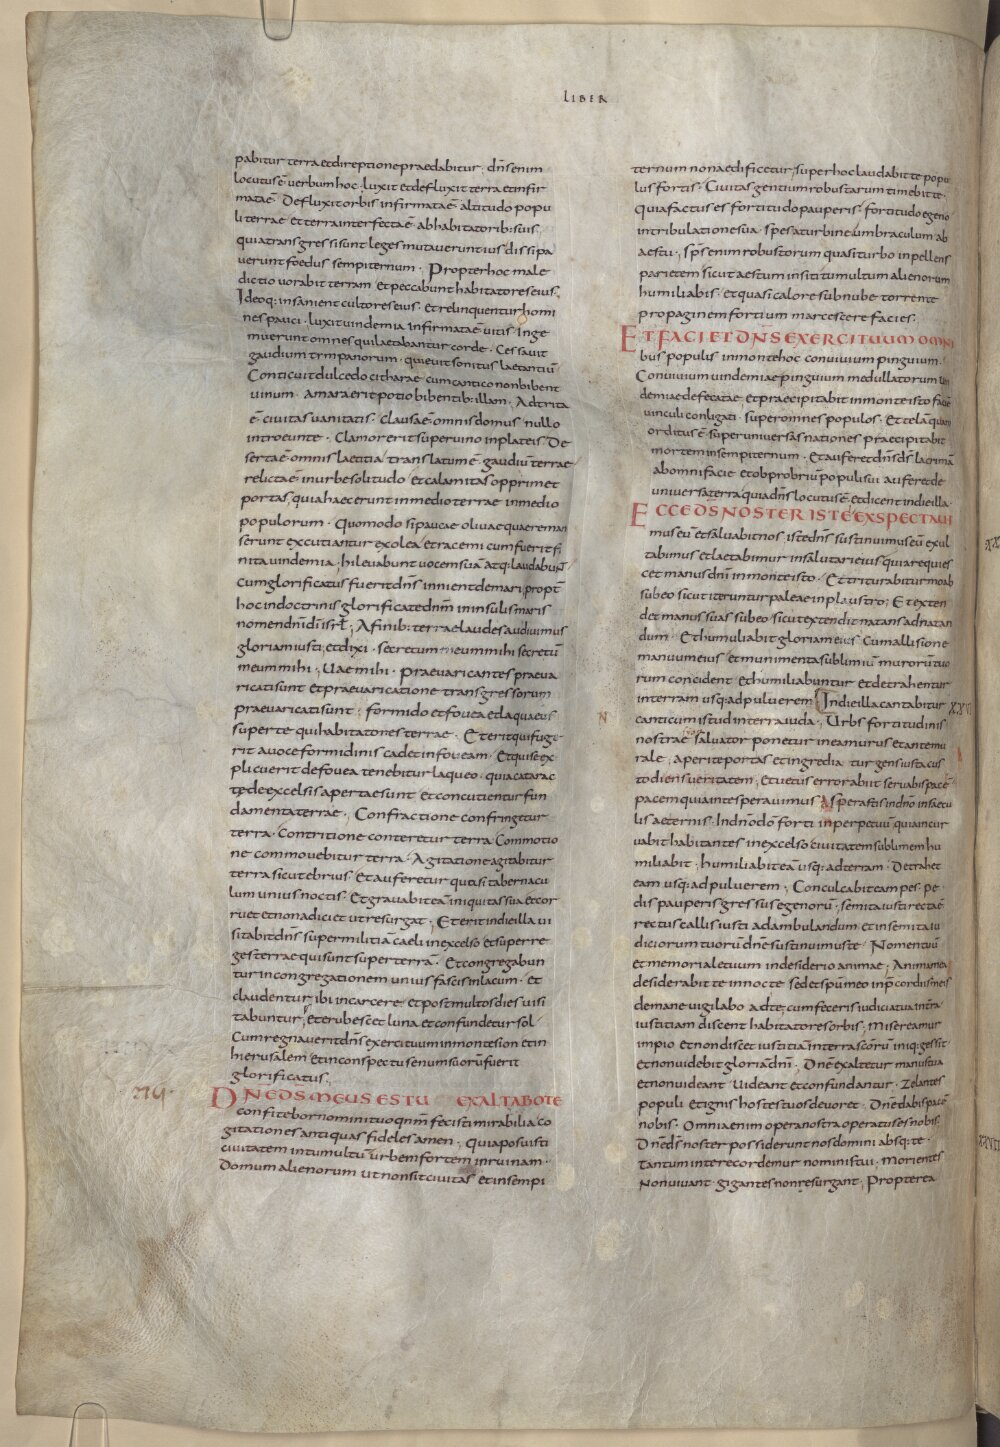 LIBER
pabitur terra et direptione praedabitur · dn̄s enim
locutus ē verbum hoc · luxit et defluxit terra et infir
mata ē · Defluxit orbis infirmata ē altitudo popu
li terrae et terra interfecta ē ab habitatorib: suis
quia transgressi sunt leges mutaverunt ius dissipa
verunt foedus sempiternum · Propter hoc male
dictio vorabit terram et peccibunt habitatores eius
Ideoq: insanient cultores eius · et relinquentur homi
nes pauci · luxit uindemia infirmata ē uitis · Inge
muerunt omnes qui laetabantur corde · Cessauit
gaudium tympanorum · quieuit sonitus laetantiū
Conticuit dulcedo citharae cum cantico non bibent
uinum · amara erit potio bibentib: illam · Adtrita
ē ciuitas uanitatis · Clausa ē omnis domus nullo
introeunte · Clamor erit super uino in plateis · De
serta ē omnis laetitia translatum ē gaudiū terrae
relicta ē in urbe solitudo et calamitas opprimet
portas, quia haec erunt in medio terrae in medio
populorum · Quomodo si paucae olivae quae reman
serunt excutiantur ex olea et racemi cum fuerit fi
nita uindemia · hi leuabunt uocem suā atq: laudabunt
cum glorificatus fuerit dn̄s inni ent de mari propt̄
hoc in doctrinis glorificate dnm̄ in insulis maris
nomen dn̄i dī isrl̄ ; A finib: terrae laudes audiuimus
gloriam iusti, et dixi · secretum meum mihi secretū
meum mihi ; Uae mihi · Praeuaricantes praeua
ricati sunt et praeuaricatione transgressorum
praeuaricati sunt · formido et fouea et laqueus
super te qui habitator es terrae · Et erit qui fuge
rit a uoce formidinis cadet in foueam · Et qui se ex
plicuerit de fouea tenebitur laqueo · quia catarac
te de excelsis apertae sunt et concutientur fun
damenta terrae · Confractione confringetur
terra · Contritione conteretur terra · Commotio
ne commouebitur terra · Agitatione agitabitur
terra sicut ebrius · Et auferetur quasi tabernacu
lum unius noctis · Et grauabit eā iniquitas sua et cor
ruet et non adiciet ut resurgat · Et erit in die illa ui
sitabit dn̄s super militiā caeli in excelso et super re
ges terrae qui sunt super terrā · Et congregabun
tur in congregationem unius fascis in lacum · et
claudentur ibi in carcere et post multos dies uisi
tabuntur, et erubescet luna et confundetur sol
Cum regnauerit dn̄s exercituum in monte sion et in
hierusalem et in conspectu senum suorū fuerit
glorificatus ;
DN̄E DS̄ MEUS ES TU EXALTABO TE
confitebor nomini tuo qnm̄ fecisti mirabilia co
gitationes antiquas fideles amen · Quia posuisti
ciuitatem in tumultū urbem fortem in ruinam ·
Domum alienorum ut non sit ciuitas et in sempi
ternum non aedificetur, super hoc laudabit te popu
lus fortis · Ciuitas gentium robustarum timebit te ·
Quia factus es fortitudo pauperis fortitudo egeno
in tribulatione sua · spes a turbine umbraculum ab
aestu · Sps̄ enim robustorum quasi turbo inpellens
parietem sicut aestum in siti tumultum alienorum
humiliabis · et quasi calore sub nube torrente
propaginem fortium marcescere facies ·
ET FACIET DN̄S EXERCITUUM OMNI
bus populis in monte hoc conuiuium pinguium ·
Conuiuium uindemiae pinguium medullatorum uin
demiae defecatae, et praecipitabit in monte isto faciē
uinculi conligati · super omnes populos · Et telā quam
orditus ē super uniuersas nationes praecipitabit
mortem in sempiternum · Et auferet dn̄s ds̄ lacrimā
ab omni facie et obprobriū populi sui auferet de
uniuersa terra quia dn̄s locutus ē, et dicent in die illa ·
ECCE DS̄ NOSTER ISTE EXSPECTAUI
mus eū et saluabit nos · iste dn̄s sustinuimus eū exul
tabimus et laetabimur in salutari eius quia requies
cet manus dn̄i in monte isto · Et triturabitur moab
sub eo sicut iteruntur paleae in plaustro ; Et exten
det manus suas sub eo · sicut extendit natans ad natan
dum · Et humiliabit gloriam eius Cum allisione
manuum eius et munimenta sublimiū murorū tuo
rum concident et humiliabuntur et detrahentur
in terram usq: ad puluerem ; In die illa cantabitur XXVI
canticum istud in terra iuda ; Urbs fortitudinis
nostrae saluator ponetur in ea murus et antemu
rale, aperite portas et ingredia tur gens iusta cus
todiens ueritatem, et uetus error abiit seruabis pacē
pacem quia in te sperauimus Sperastis in dn̄o in saecu
lis aeternis · In dn̄o dō forti in perpetuū quia incur
uabit habitantes in excelso ciuitatem sublimem hu
miliabit · humiliabit eā usq: ad terram · Detrahet
eam usq: ad puluerem ; Conculcabit eam pes · pe
dis pauperis gressus egenorū ; semita iusti recta ē
rectus callis iusti ad ambulandum et in semita iu
diciorum tuorū dn̄e sustinuimus te · Nomen tuū
et memoriale tuum in desiderio animae ; Anima mea
desiderabit te in nocte sed et spū meo in p̄cordiis meis
de mane uigilabo ad te, cum feceris iudicia tua in terra
iustitiam discent habitatores orbis ; Misereamur
impio et non discet iustitiā in terra scōrū iniq: gessit
et non uidebit gloriā dn̄i · Dn̄e exaltetur manus tua
et non uideant Uideant et confundantur · Zelantes
populi et ignis hostes tuos deuoret · Dn̄e dabis pacē
nobis · Omnia enim opera nostra operatus es nobis ·
Dn̄e ds̄ noster possiderunt nos domini absq: te ·
tantum in te recordemur nominis tui ; Morientes
Non uiuant · gigantes non resurgant ; Propterea
N